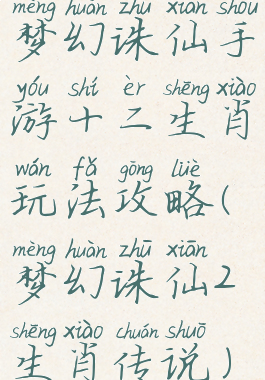 mèng huàn zhū xiān shǒu
梦幻诛仙手
yóu shí èr shēng xiào
游十二生肖
wán fǎ gōng lüè
玩法攻略(
mèng huàn zhū xiān
梦幻诛仙2
shēng xiào chuán shuō
生肖传说)